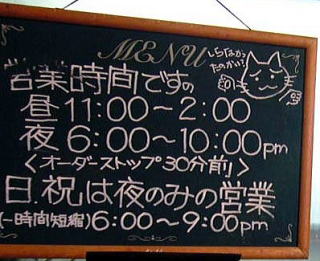 MENU
しらなかったのかい?
営業時間ですの
昼 11:00～2:00
夜 6:00～10:00pm
〈オーダーストップ30分前」〉
日.祝は夜のみの営業
(一時間短縮)6:00～9:00pm